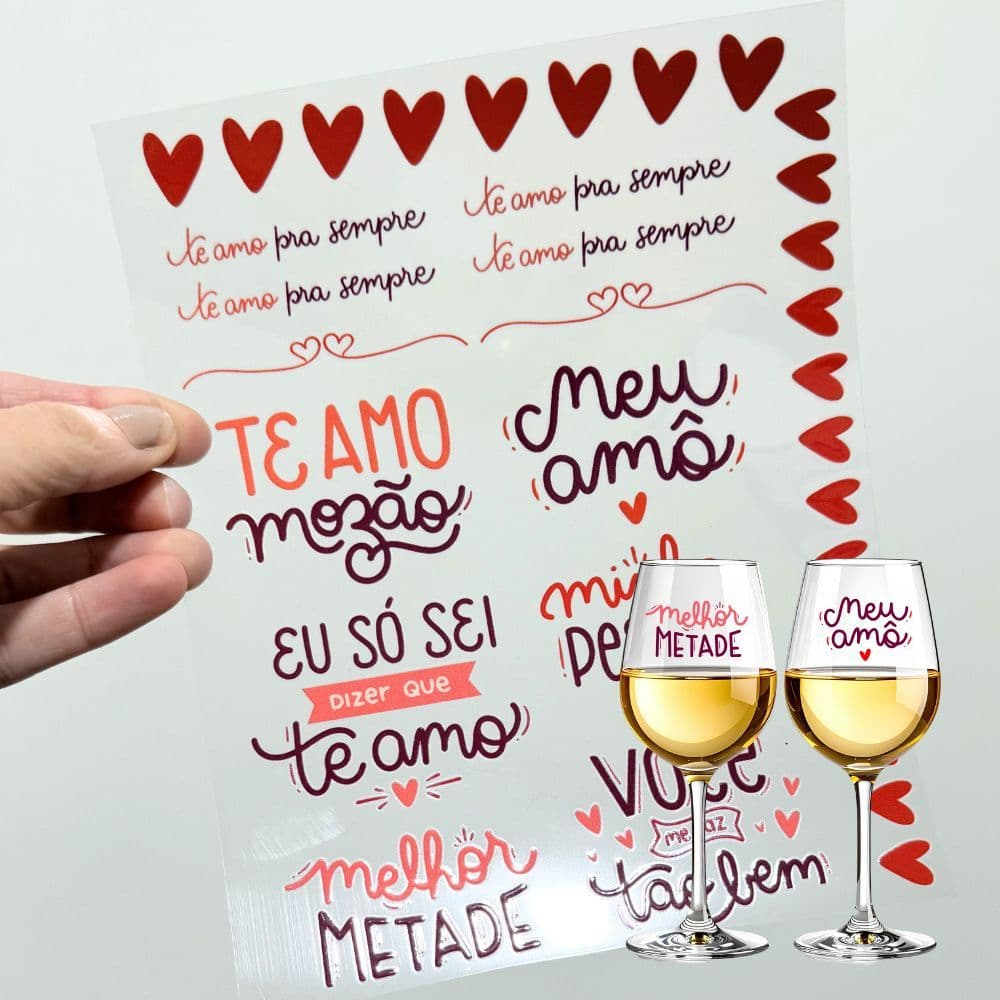 te amo pra sempre
te amo pra sempre
te amo pra sempre
te amo pra sempre
TE AMO
mozão
Meu
amô
EU SÓ SEI
DIZER QUE
te amo
melhor
METADE
VOCÊ
me faz
tão bem
melhor
METADE
Meu
amô